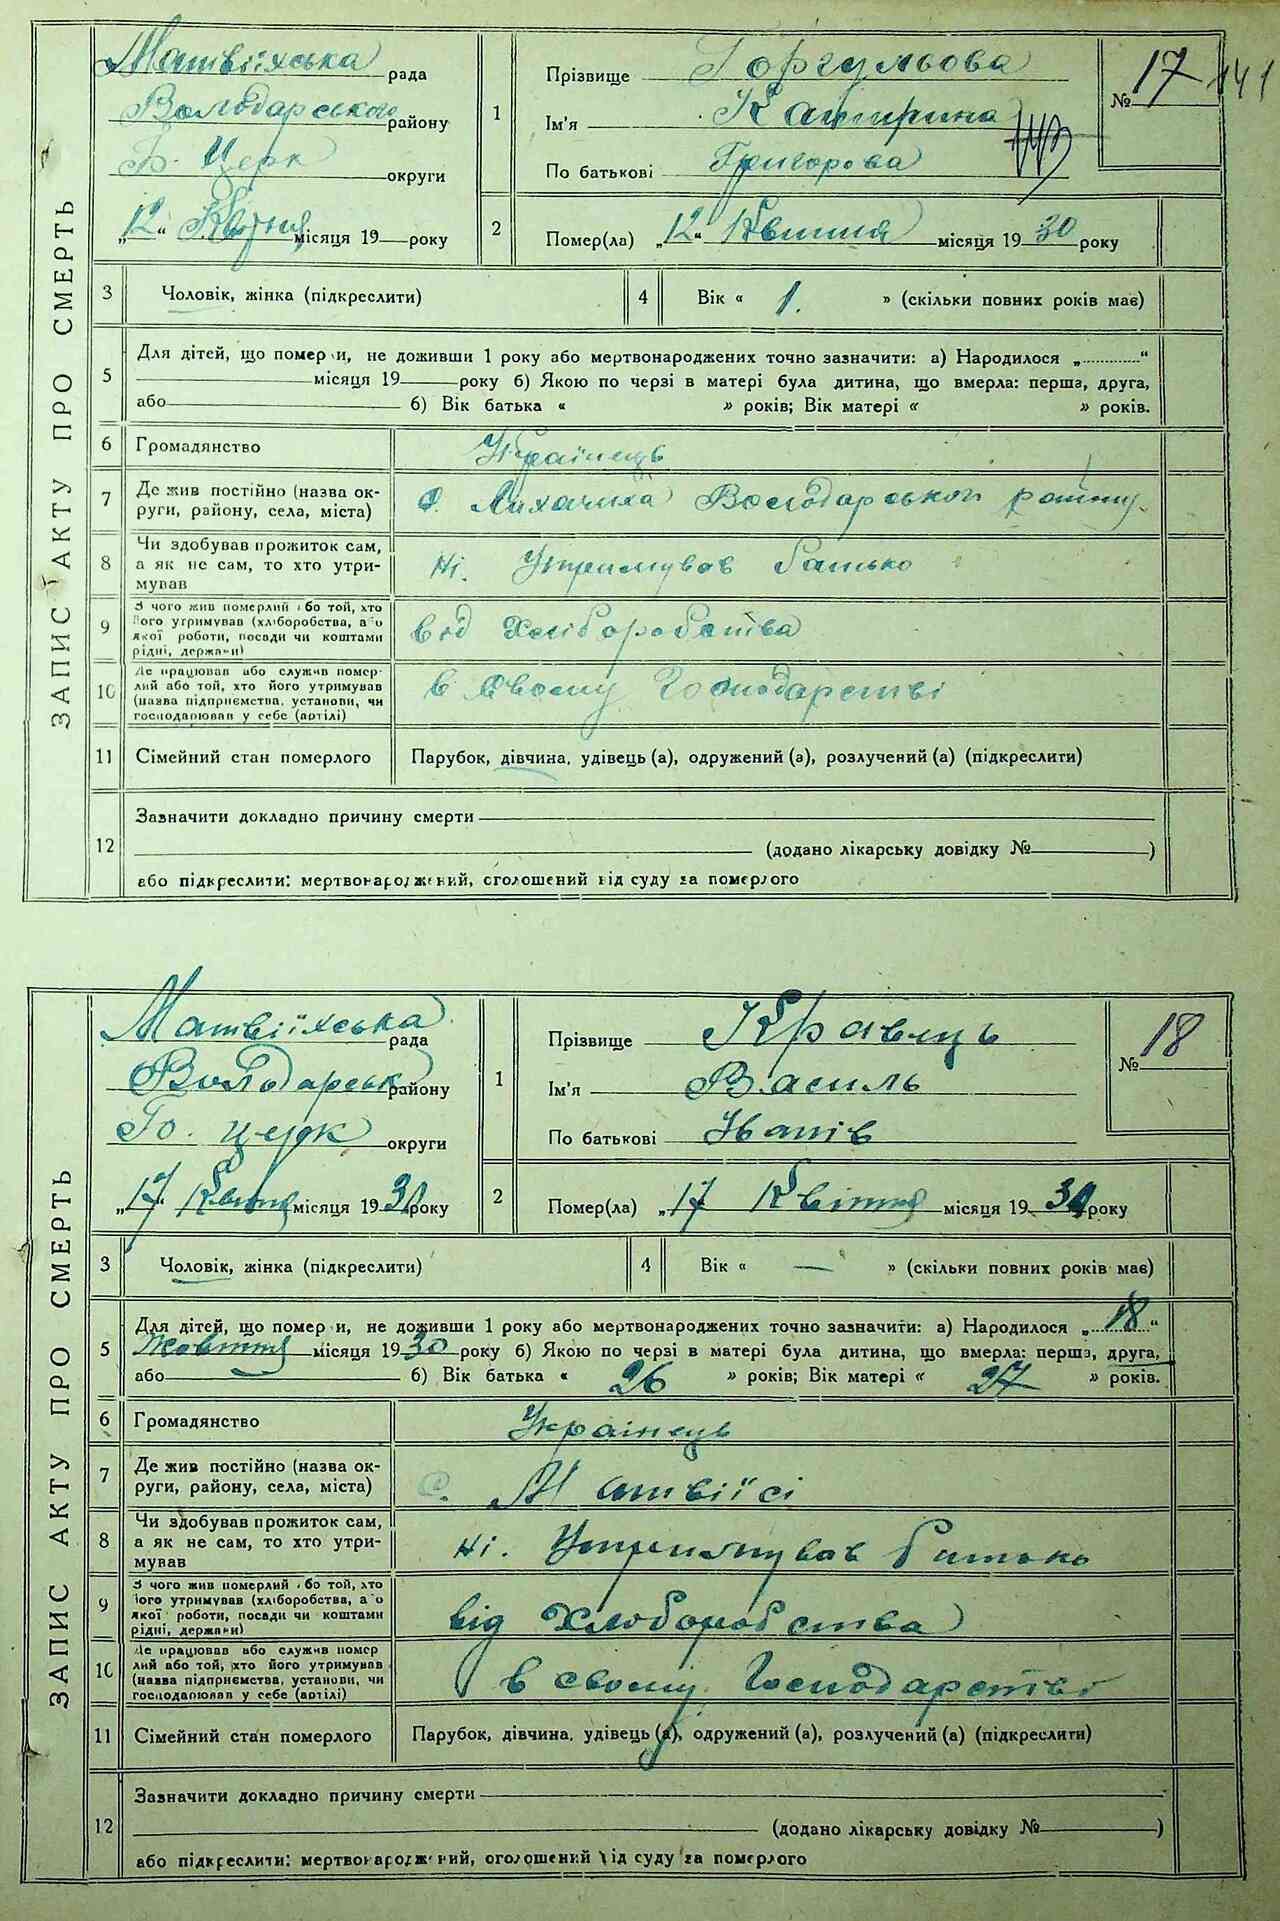 141
ЗАПИС АКТУ ПРО СМЕРТЬ
Матвіїхська рада
Володарського району
Б. Церк округи
„12“ Квітня місяця 19 року
1
Прізвище Горгульова
Ім'я Катирина
По батькові Григорова
№ 17
2
Помер(ла) „12“ Квітня місяця 1930 року
3 Чоловік, жінка (підкреслити)
4 Вік « 1. » (скільки повних років має)
5 Для дітей, що померли, не доживши 1 року або мертвонароджених точно зазначити: а) Народилося „ “
місяця 19 року б) Якою по черзі в матері була дитина, що вмерла: перша, друга,
або б) Вік батька « » років; Вік матері « » років.
6 Громадянство Українець
7 Де жив постійно (назва округи, району, села, міста) с. Лихачиха Володарського району
8 Чи здобував прожиток сам, а як не сам, то хто утримував Ні. Утримував батько
9 З чого жив померлий або той, хто його утримував (хліборобства, або якої роботи, посади чи коштами рідні, держави) від Хліборобства
10 Де працював або служив померлий або той, хто його утримував (назва підприємства, установи, чи господарював у себе (артілі) в своєму Господарстві
11 Сімейний стан померлого Парубок, дівчина, удівець (а), одружений (а), розлучений (а) (підкреслити)
12 Зазначити докладно причину смерти
(додано лікарську довідку № )
або підкреслити: мертвонароджений, оголошений від суду за померлого
ЗАПИС АКТУ ПРО СМЕРТЬ
Матвіїхська рада
Володарськ району
Б. церк округи
„17“ Квітня місяця 1930 року
1
Прізвище Кравець
Ім'я Василь
По батькові Іванів
№ 18
2
Помер(ла) „17 Квіття місяця 1930 року
3 Чоловік, жінка (підкреслити)
4 Вік « — » (скільки повних років має)
5 Для дітей, що померли, не доживши 1 року або мертвонароджених точно зазначити: а) Народилося „18“
Жовття місяця 1930 року б) Якою по черзі в матері була дитина, що вмерла: перша, друга,
або б) Вік батька « 26 » років; Вік матері « 27 » років.
6 Громадянство Українець
7 Де жив постійно (назва округи, району, села, міста) с. Матвіїсі
8 Чи здобував прожиток сам, а як не сам, то хто утримував Ні. Утримував батько
9 З чого жив померлий або той, хто його утримував (хліборобства, або якої роботи, посади чи коштами рідні, держави) від Хлоборобства
10 Де працював або служив померлий або той, хто його утримував (назва підприємства, установи, чи господарював у себе (артілі) в своєму Господарстві
11 Сімейний стан померлого Парубок, дівчина, удівець (а), одружений (а), розлучений (а) (підкреслити)
12 Зазначити докладно причину смерти
(додано лікарську довідку № )
або підкреслити: мертвонароджений, оголошений від суду за померлого